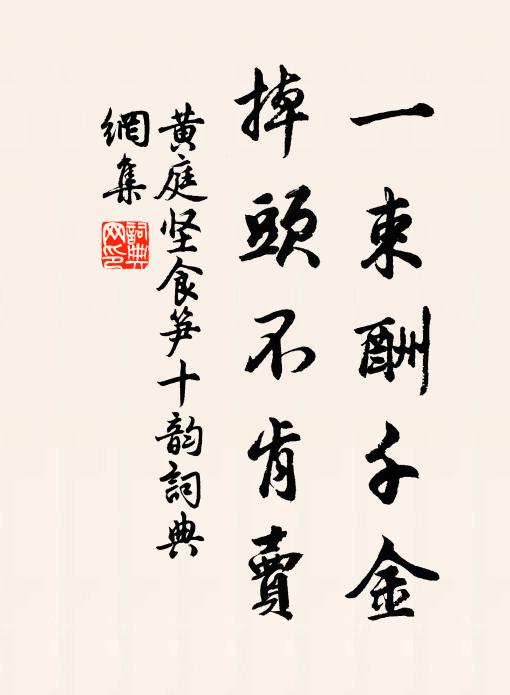 一束酬千金
掉頭不肯賣
黄庭坚食笋十韵詞典
網集
詞典
网印